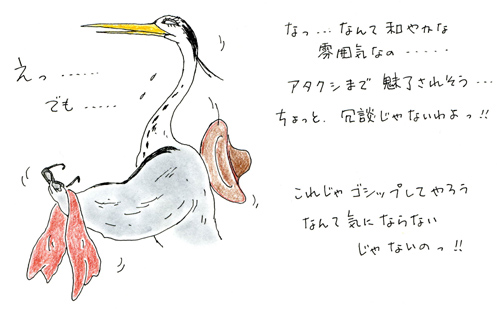 えっ……
でも……
なっ…なんて和やかな
雰囲気なの……
アタクシまで魅了されそう…
ちょっと、冗談じゃないわよっ!!
これじゃゴシップしてやろう
なんて気にならない
じゃないのっ!!